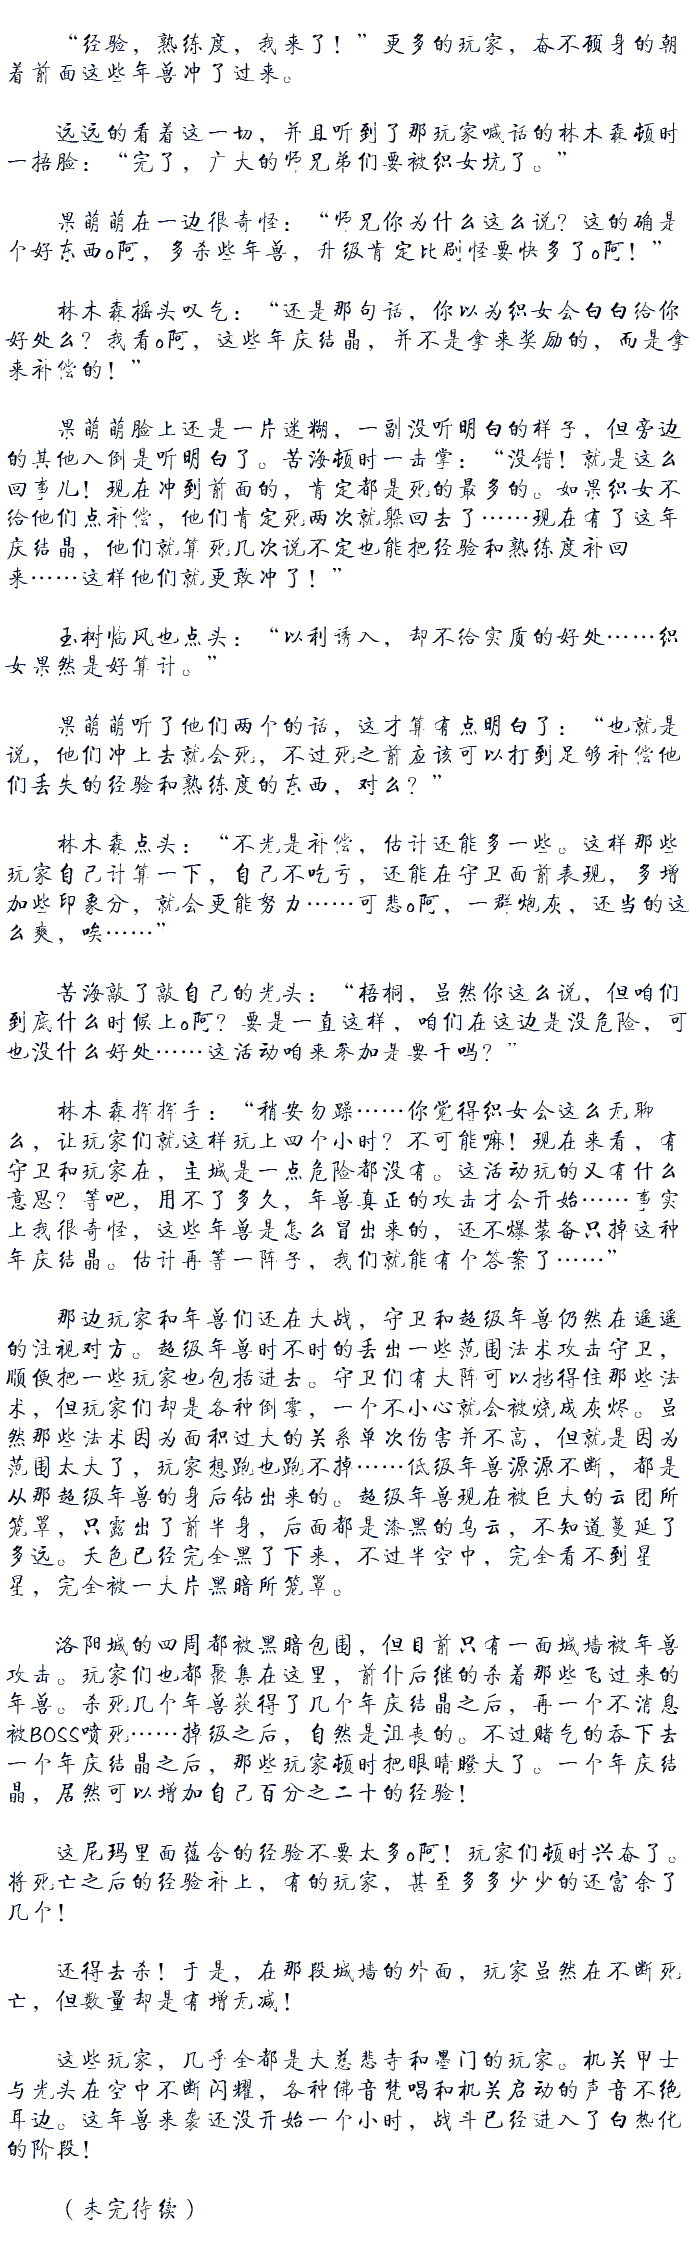 “经验，熟练度，我来了！”更多的玩家，奋不顾身的朝
着前面这些年兽冲了过来。
远远的看着这一切，并且听到了那玩家喊话的林木森顿时
一捂脸：“完了，广大的师兄弟们要被织女坑了。”
果萌萌在一边很奇怪：“师兄你为什么这么说？这的确是
个好东西o阿，多杀些年兽，升级肯定比刷怪要快多了o阿！”
林木森摇头叹气：“还是那句话，你以为织女会白白给你
好处么？我看o阿，这些年庆结晶，并不是拿来奖励的，而是拿
来补偿的！”
果萌萌脸上还是一片迷糊，一副没听明白的样子，但旁边
的其他入倒是听明白了。苦海顿时一击掌：“没错！就是这么
回事儿！现在冲到前面的，肯定都是死的最多的。如果织女不
给他们点补偿，他们肯定死两次就躲回去了……现在有了这年
庆结晶，他们就算死几次说不定也能把经验和熟练度补回
来……这样他们就更敢冲了！”
玉树临风也点头：“以利诱入，却不给实质的好处……织
女果然是好算计。”
果萌萌听了他们两个的话，这才算有点明白了：“也就是
说，他们冲上去就会死，不过死之前应该可以打到足够补偿他
们丢失的经验和熟练度的东西，对么？”
林木森点头：“不光是补偿，估计还能多一些。这样那些
玩家自己计算一下，自己不吃亏，还能在守卫面前表现，多增
加些印象分，就会更能努力……可悲o阿，一群炮灰，还当的这
么爽，唉……”
苦海敲了敲自己的光头：“梧桐，虽然你这么说，但咱们
到底什么时候上o阿？要是一直这样，咱们在这边是没危险，可
也没什么好处……这活动咱来参加是要干吗？”
林木森挥挥手：“稍安勿躁……你觉得织女会这么无聊
么，让玩家们就这样玩上四个小时？不可能嘛！现在来看，有
守卫和玩家在，主城是一点危险都没有。这活动玩的又有什么
意思？等吧，用不了多久，年兽真正的攻击才会开始……事实
上我很奇怪，这些年兽是怎么冒出来的，还不爆装备只掉这种
年庆结晶。估计再等一阵子，我们就能有个答案了……”
那边玩家和年兽们还在大战，守卫和超级年兽仍然在遥遥
的注视对方。超级年兽时不时的丢出一些范围法术攻击守卫，
顺便把一些玩家也包括进去。守卫们有大阵可以挡得住那些法
术，但玩家们却是各种倒霉，一个不小心就会被烧成灰烬。虽
然那些法术因为面积过大的关系单次伤害并不高，但就是因为
范围太大了，玩家想跑也跑不掉……低级年兽源源不断，都是
从那超级年兽的身后钻出来的。超级年兽现在被巨大的云团所
笼罩，只露出了前半身，后面都是漆黑的乌云，不知道蔓延了
多远。天色已经完全黑了下来，不过半空中，完全看不到星
星，完全被一大片黑暗所笼罩。
洛阳城的四周都被黑暗包围，但目前只有一面城墙被年兽
攻击。玩家们也都聚集在这里，前仆后继的杀着那些飞过来的
年兽。杀死几个年兽获得了几个年庆结晶之后，再一个不消息
被BOSS喷死……掉级之后，自然是沮丧的。不过赌气的吞下去
一个年庆结晶之后，那些玩家顿时把眼睛瞪大了。一个年庆结
晶，居然可以增加自己百分之二十的经验！
这尼玛里面蕴含的经验不要太多o阿！玩家们顿时兴奋了。
将死亡之后的经验补上，有的玩家，甚至多多少少的还富余了
几个！
还得去杀！于是，在那段城墙的外面，玩家虽然在不断死
亡，但数量却是有增无减！
这些玩家，几乎全都是大慈悲寺和墨门的玩家。机关甲士
与光头在空中不断闪耀，各种佛音梵唱和机关启动的声音不绝
耳边。这年兽来袭还没开始一个小时，战斗已经进入了白热化
的阶段！
（未完待续）